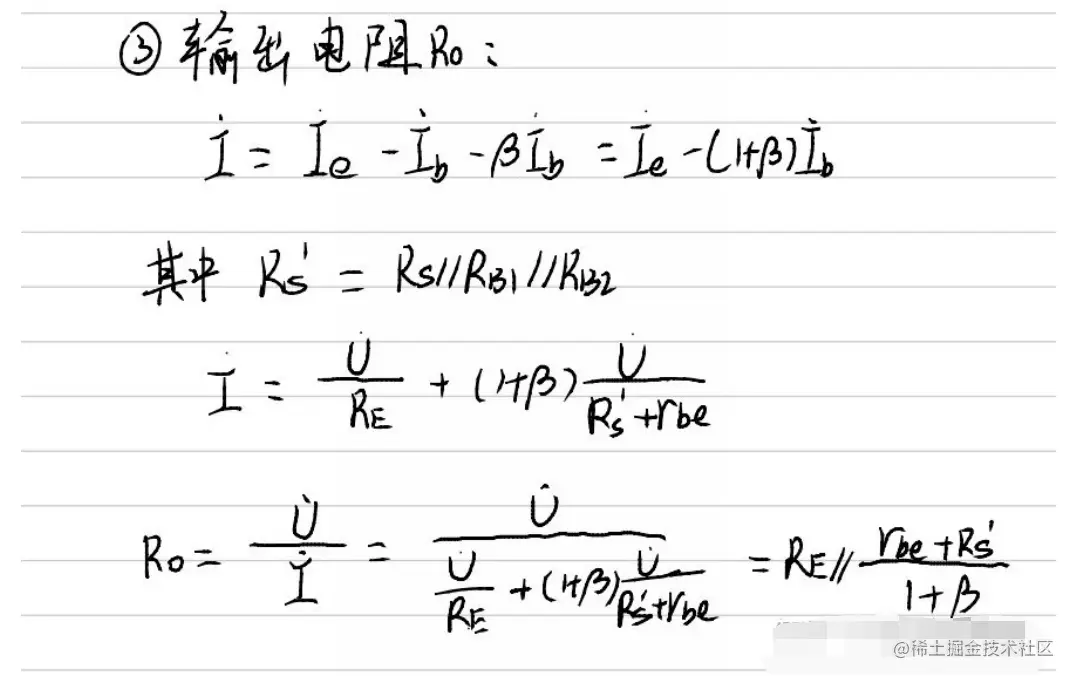 ③ 输出电阻Ro：
İ = İe - İb - βİb = İe - (1+β)İb
其中 Rs' = Rs//RB1//RB2
İ = U̇/RE + (1+β) U̇/(Rs'+rbe)
Ro = U̇/İ = U̇/(U̇/RE + (1+β) U̇/(Rs'+rbe)) = RE // (rbe+Rs')/(1+β)
@稀土掘金技术社区